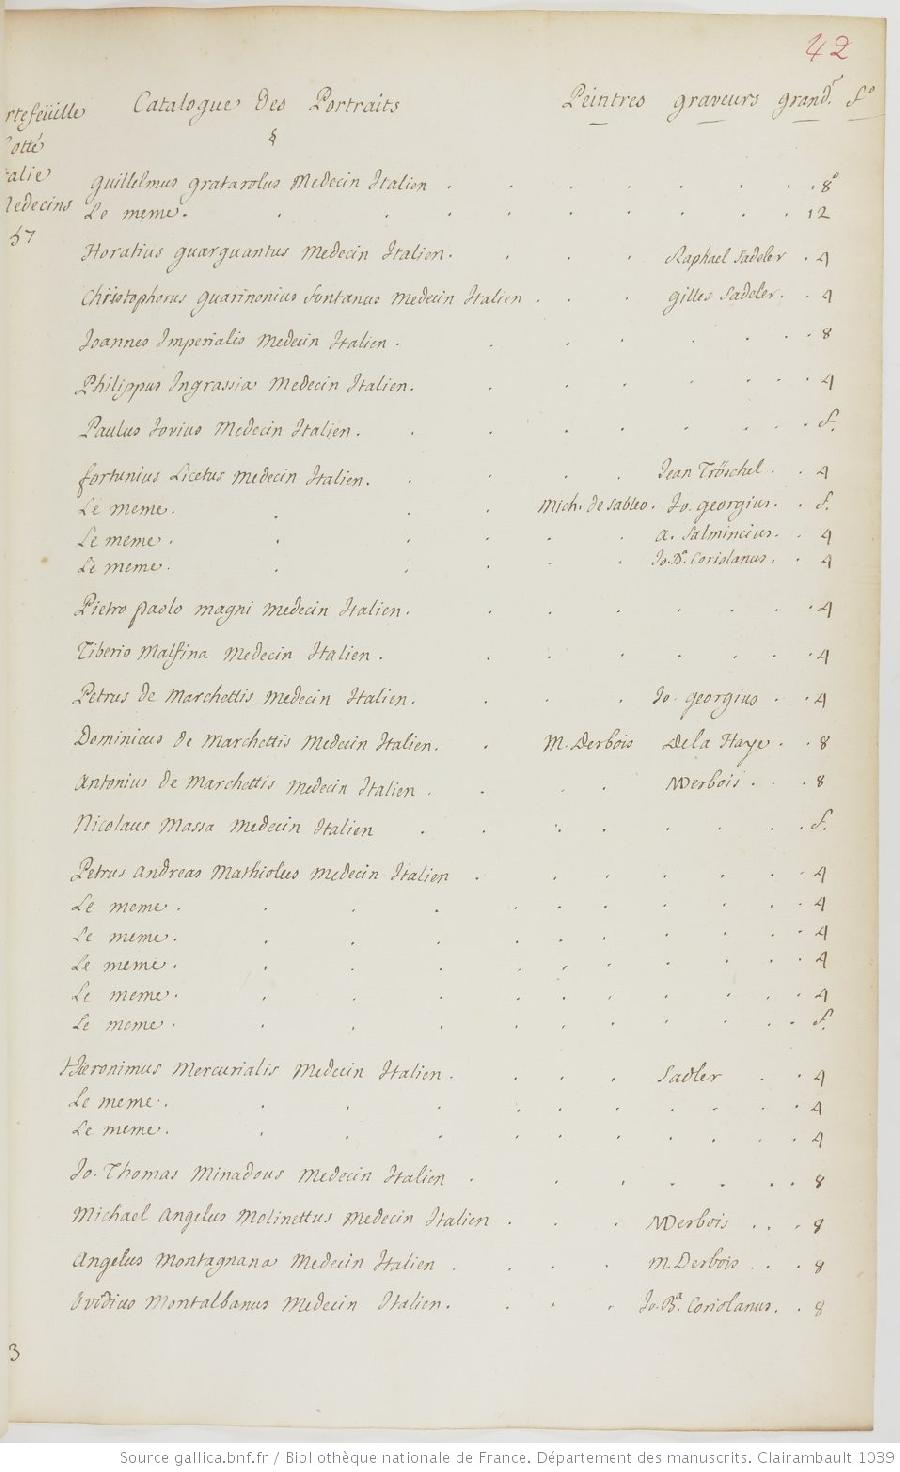 42
Catalogue Des Portraits Peintres graveurs grandr. fo
§
rtefeüille
Cotté
talie
Medecins
57
guillelmus gratarolus Medecin Italien . 8o
Le meme. 12
Horatius guarguantus Medecin Italien. Raphael Sadeler . 4
Christophorus guarinonius fontanus Medecin Italien . gilles Sadeler. 4
Joannes Imperialis Medecin Italien . 8
Philippus Ingrassia Medecin Italien. 4
Paulus Jovius Medecin Italien. f.
fortunius Licetus Medecin Italien. Jean Tröschel . 4
Le meme. Mich. de Sableo. Jo. georgius. f.
Le meme. a. Salmincius. 4
Le meme. Jo. Ba. Coriolanus. 4
Pietro paolo magni Medecin Italien. 4
Tiberio Malfina Medecin Italien. 4
Petrus de Marchettis Medecin Italien. Jo. georgius . 4
Dominicus de Marchettis Medecin Italien. M. Derbois Dela Haye . 8
Antonius de Marchettis Medecin Italien . MDerbois . 8
Nicolaus Massa Medecin Italien . f.
Petrus Andreas Mathiolus Medecin Italien . 4
Le meme . 4
Le meme . 4
Le meme . 4
Le meme . 4
Le meme . f.
Hieronimus Mercurialis Medecin Italien . Sadler . 4
Le meme . 4
Le meme . 4
Jo. Thomas Minadous Medecin Italien . 8
Michael Angelus Molinettus Medecin Italien . MDerbois . 8
Angelus Montagnana Medecin Italien . M. Derbois . 8
Ovidius Montalbanus Medecin Italien . Jo. Ba. Coriolanus. 8
3
Source gallica.bnf.fr / Bibliothèque nationale de France. Département des manuscrits. Clairambault 1039